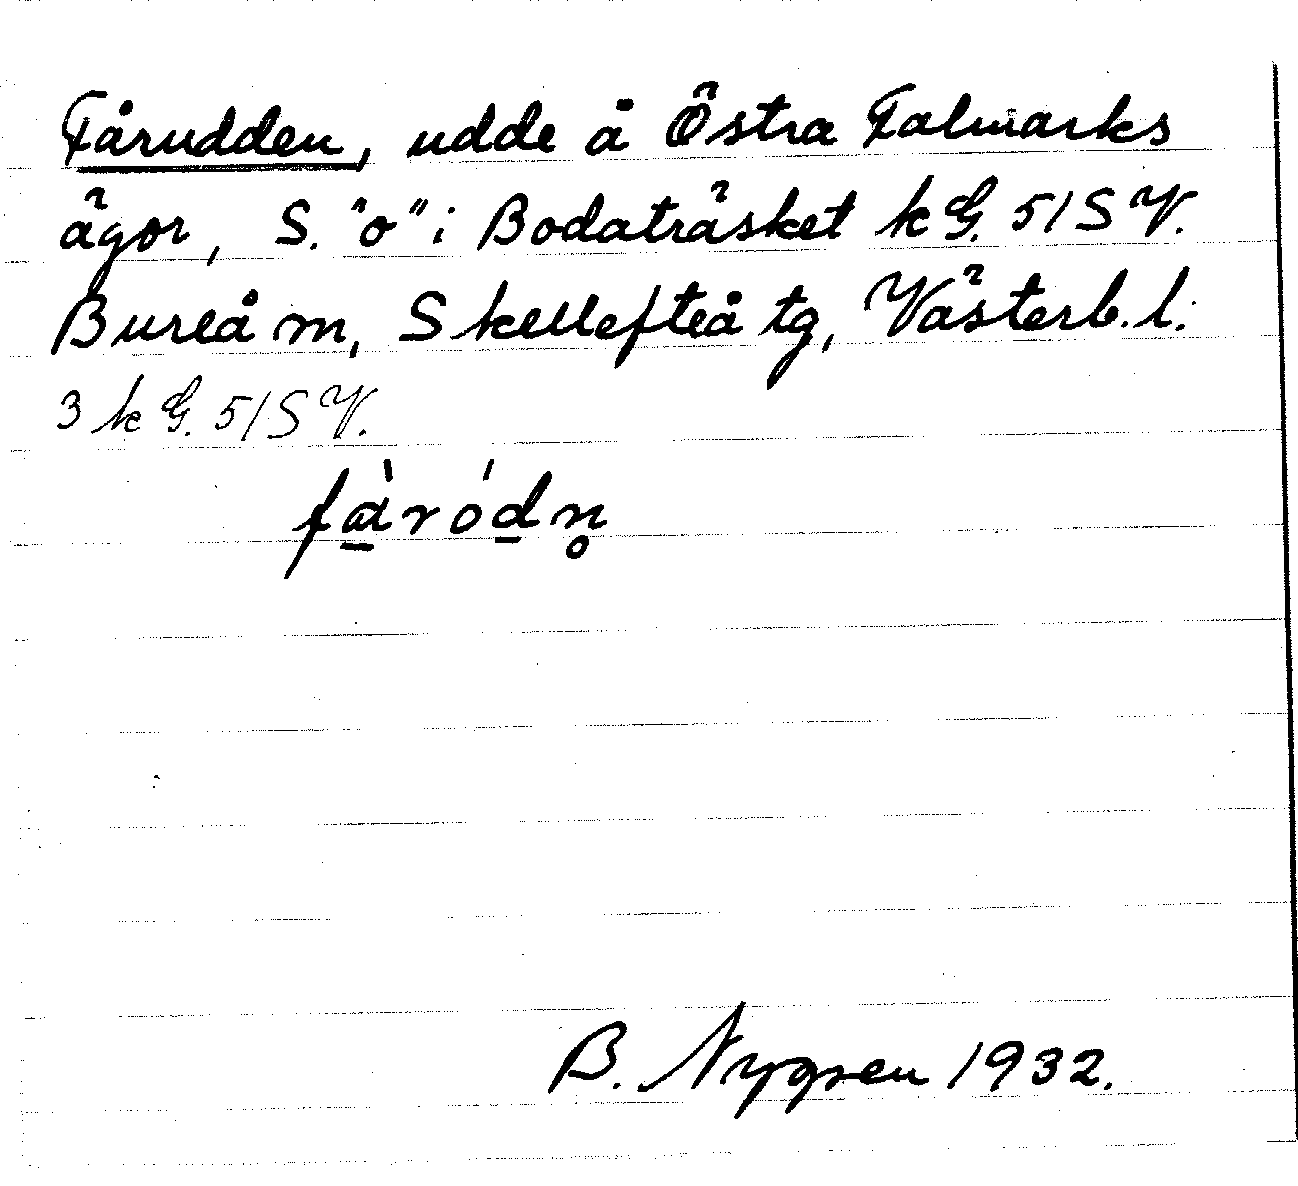 Fårudden, udde å Östra Falmarks
ägor, S. "o" i Bodaträsket k G. 51 S V.
Bureå m, Skellefteå tg, Västerb. l.
3 k G. 51 S V.
fà̱róḏn̥
B. Nygren 1932.